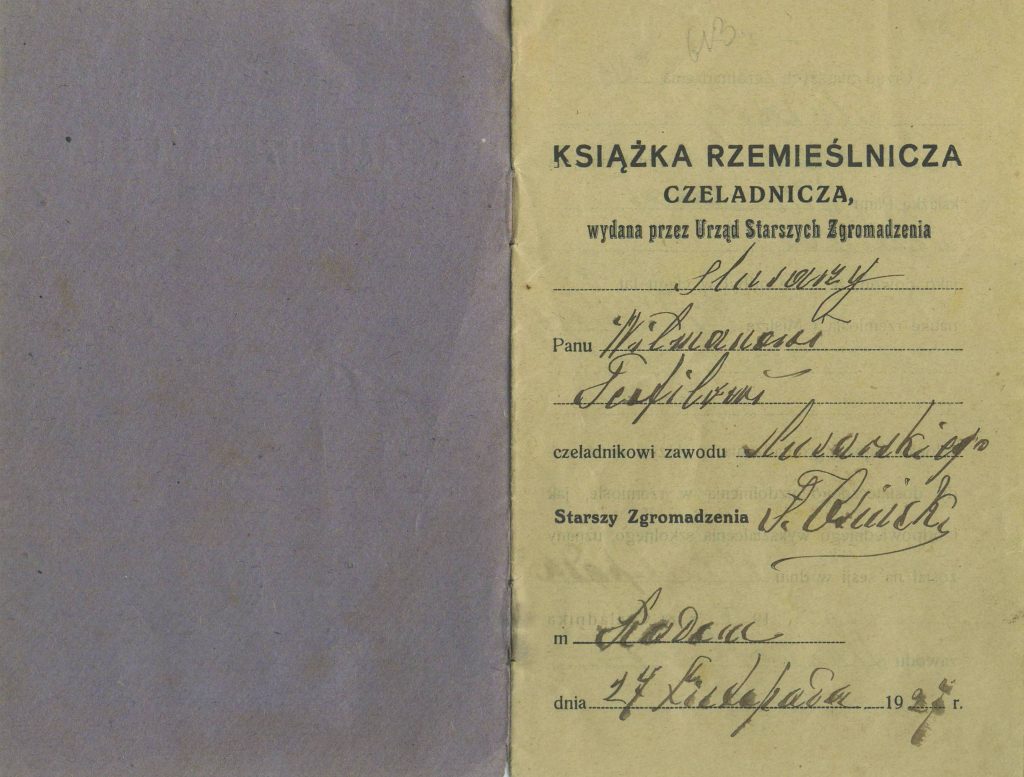 KSIĄŻKA RZEMIEŚLNICZA
CZELADNICZA,
wydana przez Urząd Starszych Zgromadzenia
Ślusarzy
Panu Wilmanowi
Teofilowi
czeladnikowi zawodu ślusarskiego
Starszy Zgromadzenia
m Radom
dnia 27 Listopada 1927 r.